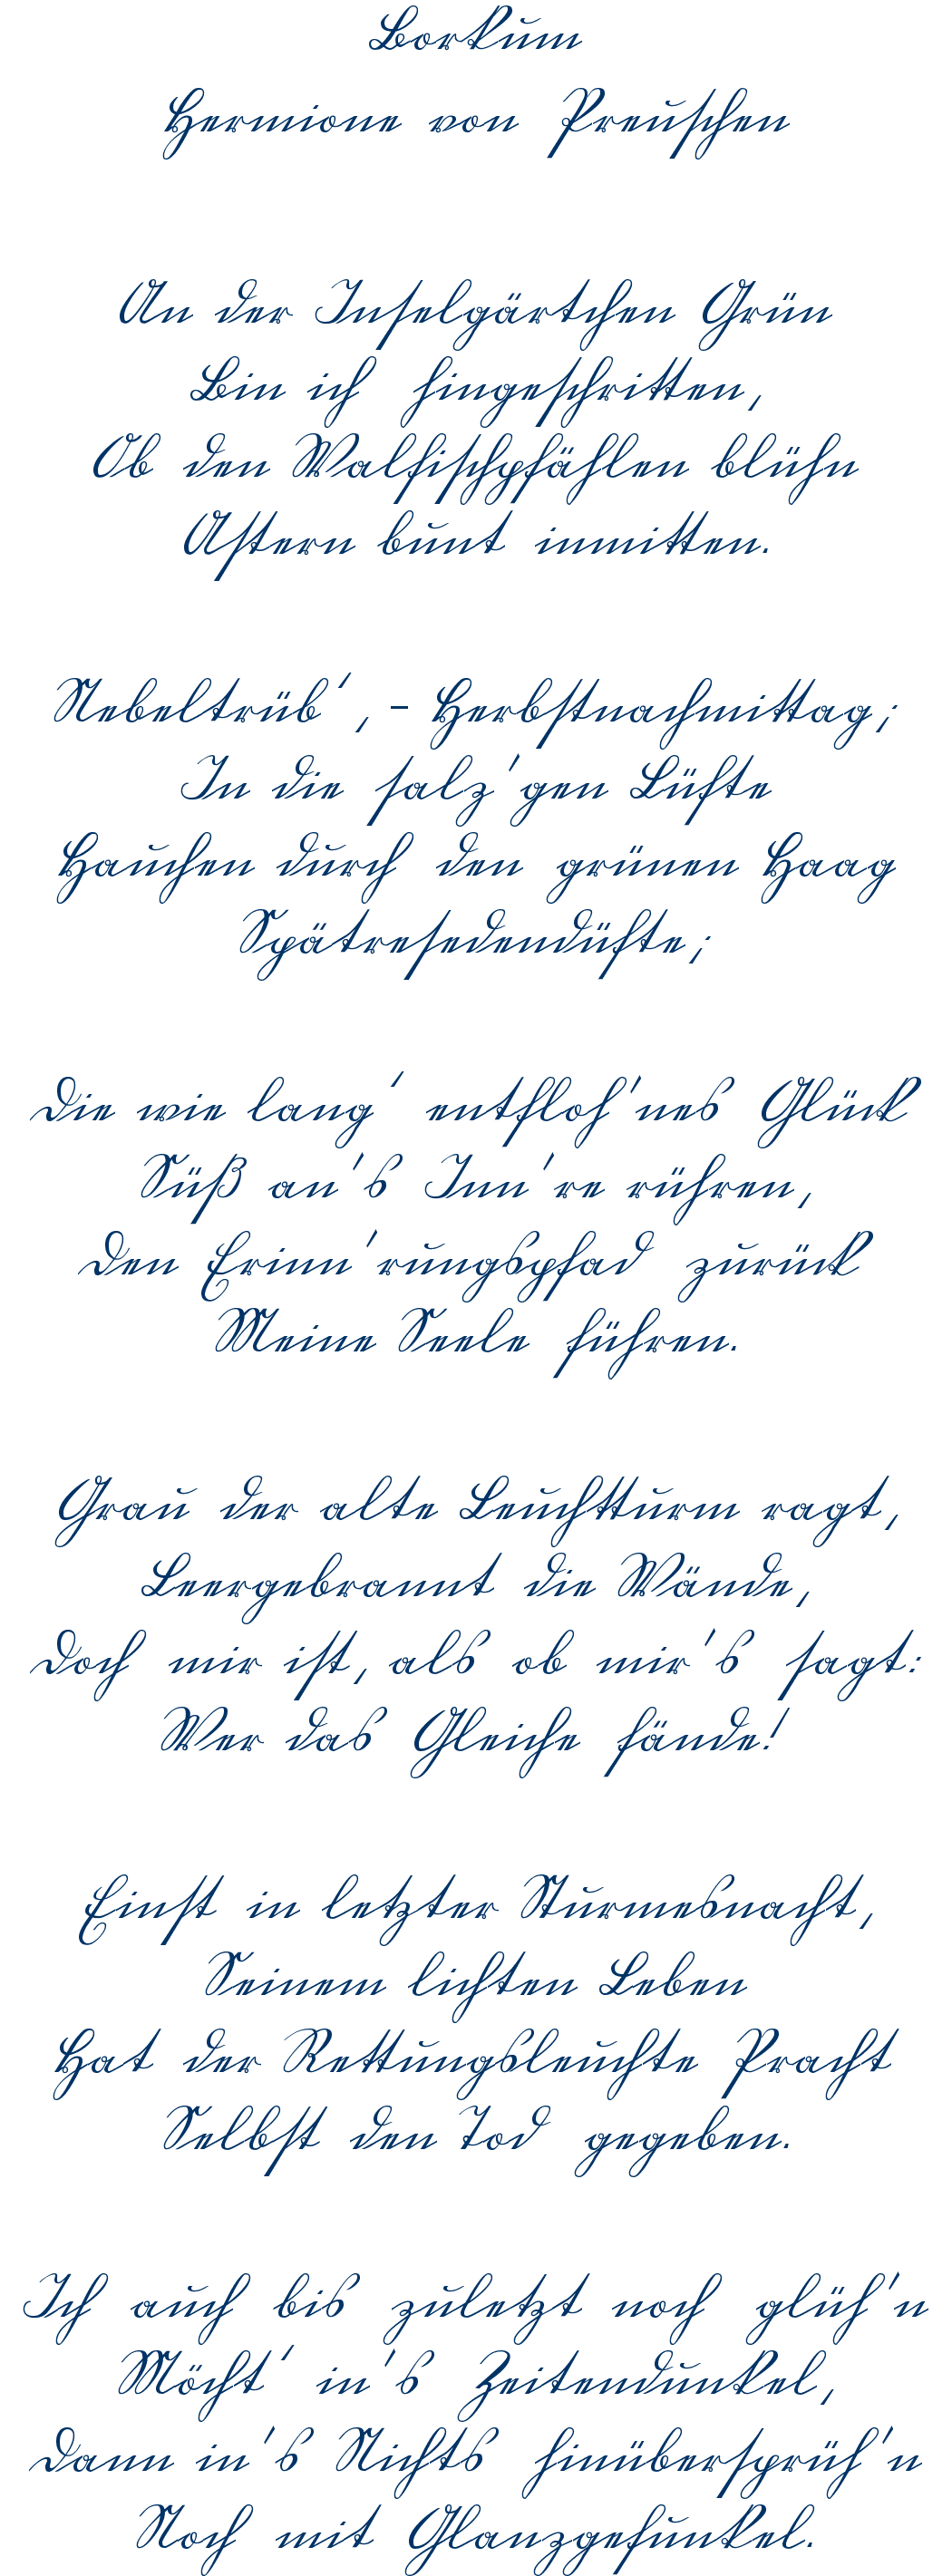 Borkum
Hermione von Preuschen
An der Inselgärtchen Grün
Bin ich hingeschritten,
Ob den Walfischpfählen blühn
Astern bunt inmitten.
Nebeltrüb', - Herbstnachmittag;
In die salz'gen Lüfte
Hauchen durch den grünen Haag
Spätresedendüfte;
Die wie lang' entfloh'nes Glück
Süß an's Inn're rühren,
Den Erinn'rungspfad zurück
Meine Seele führen.
Grau der alte Leuchtturm ragt,
Leergebrannt die Wände,
Doch mir ist, als ob mir's sagt:
Wer das Gleiche fände!
Einst in letzter Sturmesnacht,
Seinem lichten Leben
Hat der Rettungsleuchte Pracht
Selbst den Tod gegeben.
Ich auch bis zuletzt noch glüh'n
Möcht' in's Zeitendunkel,
Dann in's Nichts hinübersprüh'n
Noch mit Glanzgefunkel.